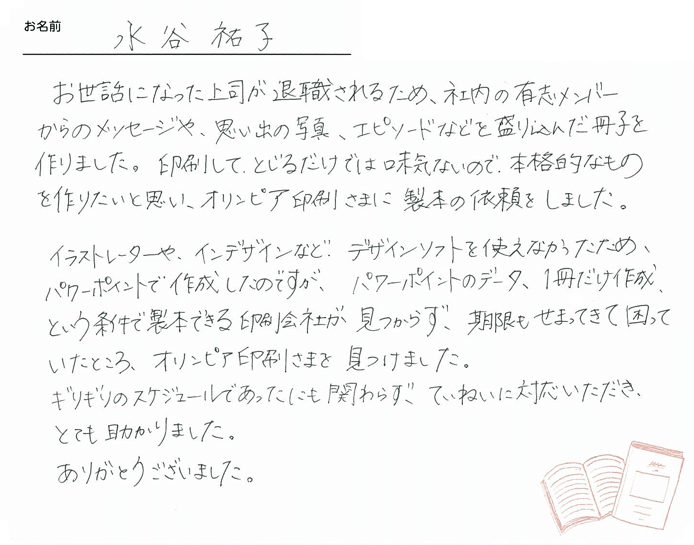 お名前
水谷祐子
お世話になった上司が退職されるため、社内の有志メンバー
からのメッセージや、思い出の写真、エピソードなどを盛り込んだ冊子を
作りました。印刷して、とじるだけでは味気ないので、本格的なもの
を作りたいと思い、オリンピア印刷さまに製本の依頼をしました。
イラストレーターや、インデザインなど、デザインソフトを使えなかったため、
パワーポイントで作成したのですが、パワーポイントのデータ、1冊だけ作成、
という条件で製本できる印刷会社が見つからず、期限もせまってきて困って
いたところ、オリンピア印刷さまを見つけました。
ギリギリのスケジュールであったにも関わらず、ていねいに対応いただき、
とても助かりました。
ありがとうございました。